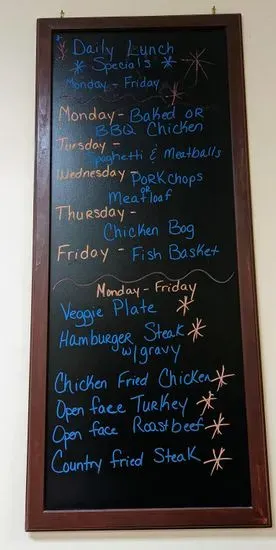 Daily Lunch
Specials
Monday - Friday
Monday - Baked OR
BBQ Chicken
Tursday -
Spaghetti & Meatballs
Wednesday - PORKchops
OR
Meatloaf
Thursday -
Chicken Bag
Friday - Fish Basket
Monday - Friday
Veggie Plate
Hamburger Steak
w/gravy
Chicken Fried Chicken
Open face Turkey
Open face Roastbeef
Country fried Steak